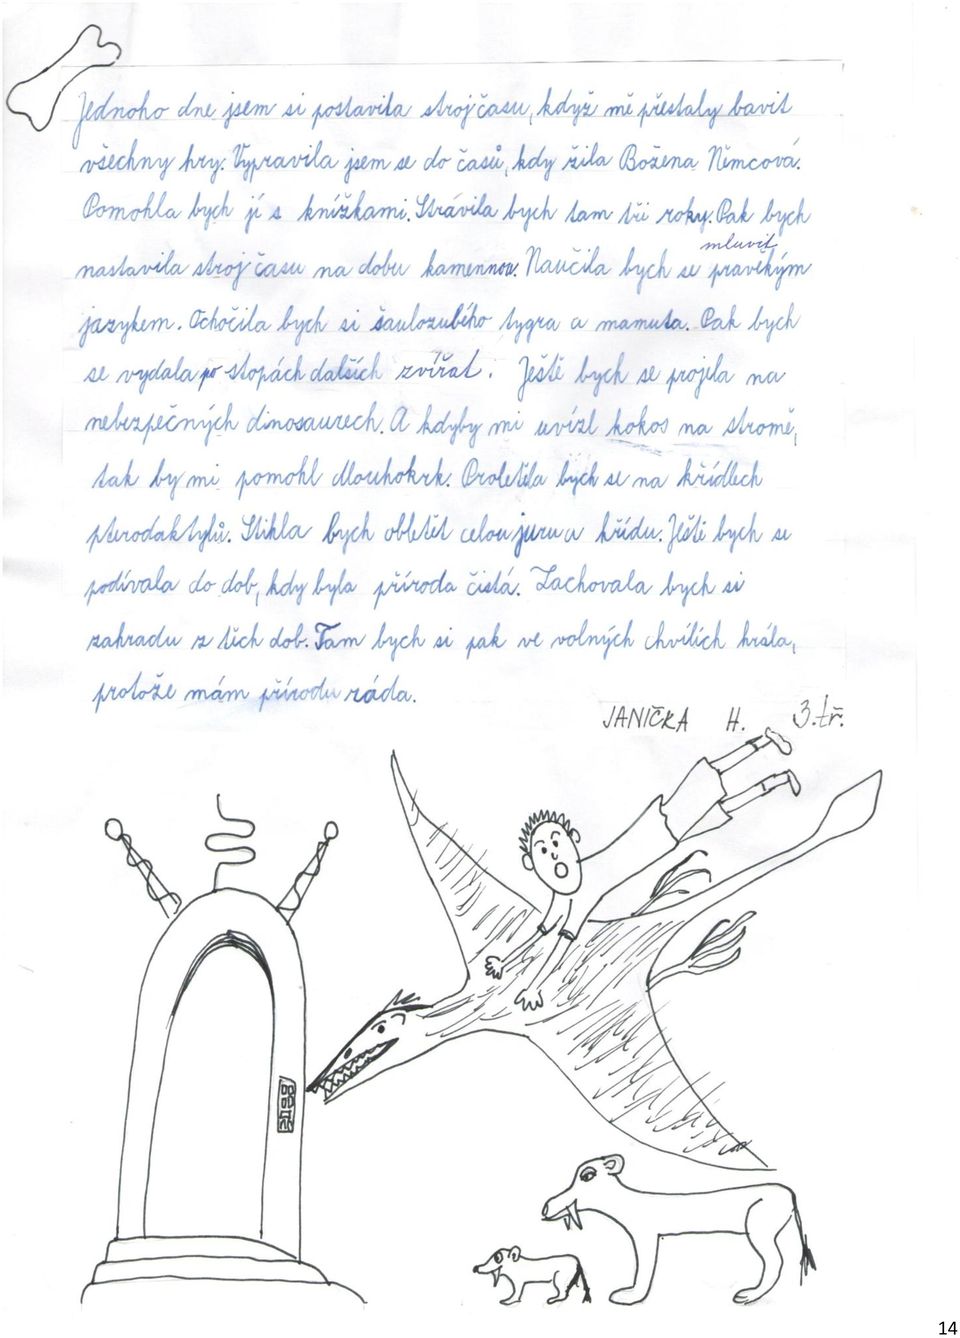 Jednoho dne jsem si postavila stroj času, když mě přestaly bavit
všechny hry. Vypravila jsem se do časů, kdy žila Božena Němcová.
Pomohla bych jí s knížkami. Strávila bych tam tři roky. Pak bych
mluvit
nastavila stroj času na dobu kamennou. Naučila bych se pravěkým
jazykem. Ochočila bych si šavlozubého tygra a mamuta. Pak bych
se vydala po stopách dalších zvířat. Ještě bych se projela na
nebezpečných dinosaurech. A kdyby mi uvízl kokos na stromě,
tak by mi pomohl dlouhokrk. Proletěla bych se na křídlech
pterodaktylů. Stihla bych obletět celou juru a křídu. Ještě bych se
podívala do dob, kdy byla příroda čistá. Zachovala bych si
zahradu z těch dob. Tam bych si pak ve volných chvílích hrála,
protože mám přírodu ráda.
JANIČKA H. 3.tř.
14